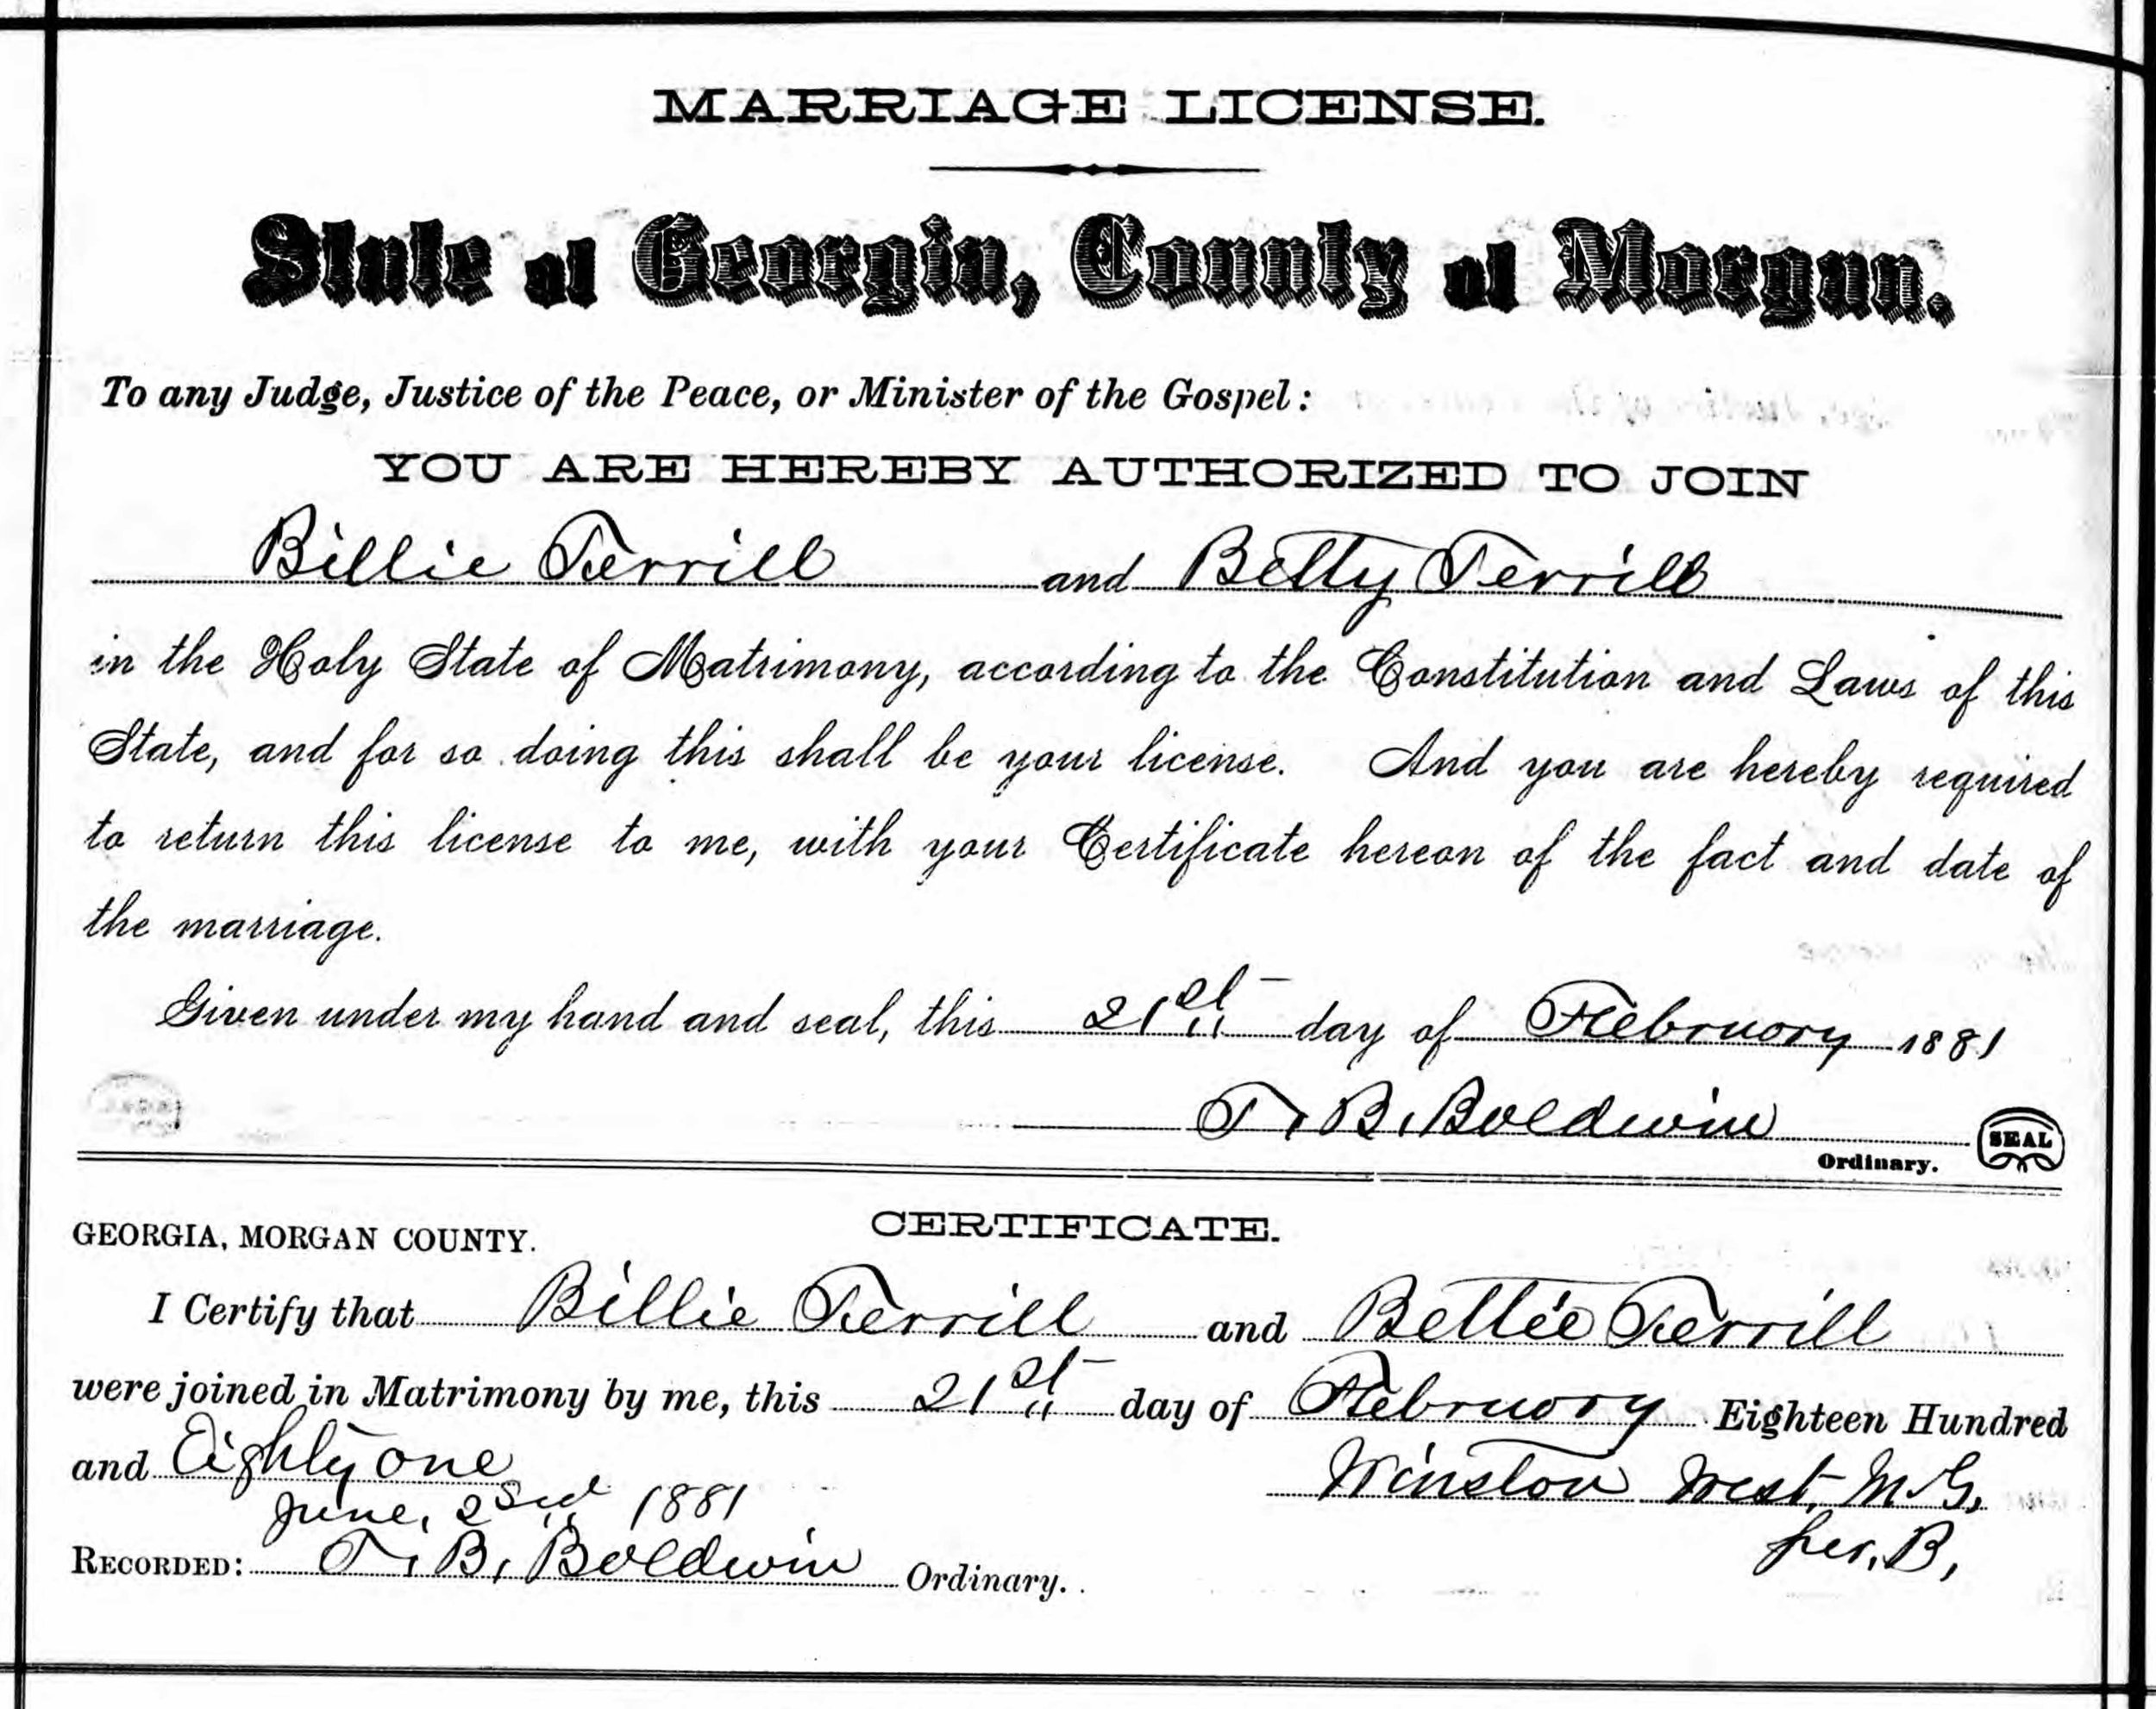 MARRIAGE LICENSE.
State of Georgia, County of Morgan.
To any Judge, Justice of the Peace, or Minister of the Gospel:
YOU ARE HEREBY AUTHORIZED TO JOIN
Billie Terrill and Betty Terrill
in the Holy State of Matrimony, according to the Constitution and Laws of this
State, and for so doing this shall be your license. And you are hereby required
to return this license to me, with your Certificate hereon of the fact and date of
the marriage.
Given under my hand and seal, this 21st day of February 1881
T. B. Baldwin
SEAL
Ordinary.
CERTIFICATE.
GEORGIA, MORGAN COUNTY.
I Certify that Billie Terrill and Bettie Terrill
were joined in Matrimony by me, this 21st day of February Eighteen Hundred
and Eighty one Winston West, M.G.
June, 23rd 1881 per. B,
RECORDED: T. B. Baldwin Ordinary.